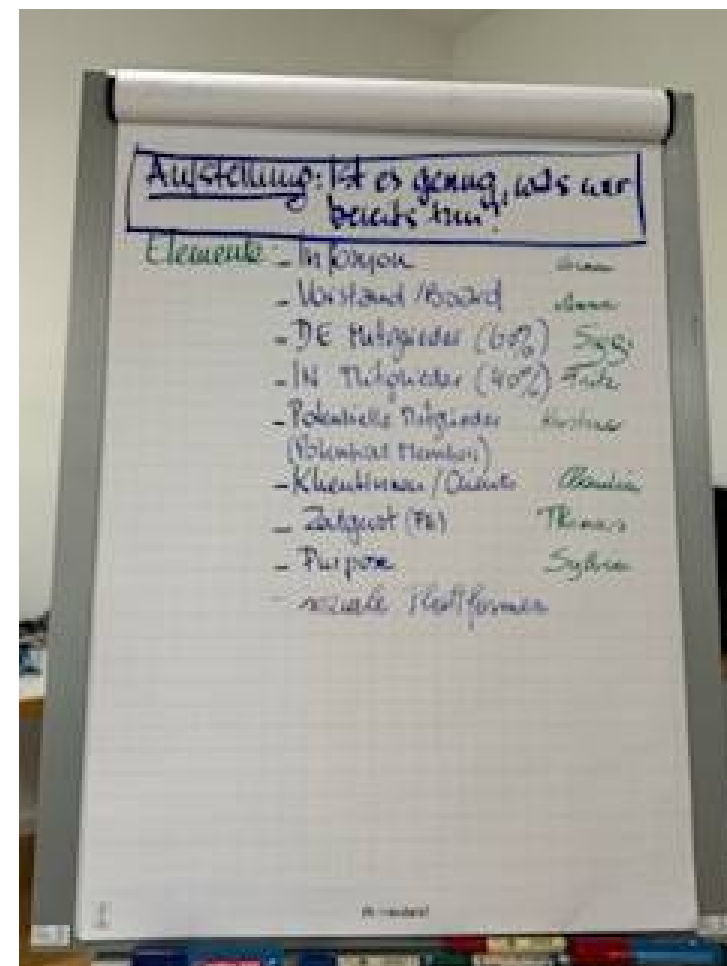 Aufstellung: Ist es genug, was wir
bereits tun?
Elemente - Infosyon
- Vorstand / Board
- DE Mitglieder (60%) Siggi
- IN Mitglieder (40%) Fritz
- Potentielle Mitglieder
(Potential Members)
- KlientInnen / Clients Claudia
- Zeitgeist Thomas
- Purpose Sylvia
- soziale Plattformen